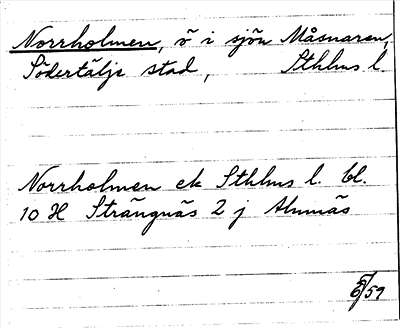 Norrholmen, ö i sjön Måsnaren,
Södertälje stad, Sthlms l.
Norrholmen ek Sthlms l. bl.
10 H Strängnäs 2 j Almnäs
/59